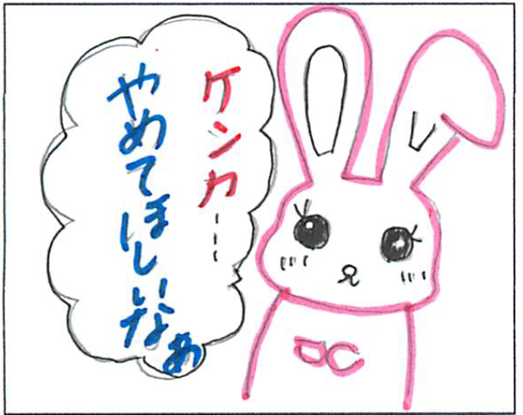 ケンカ…
やめてほしいなぁ